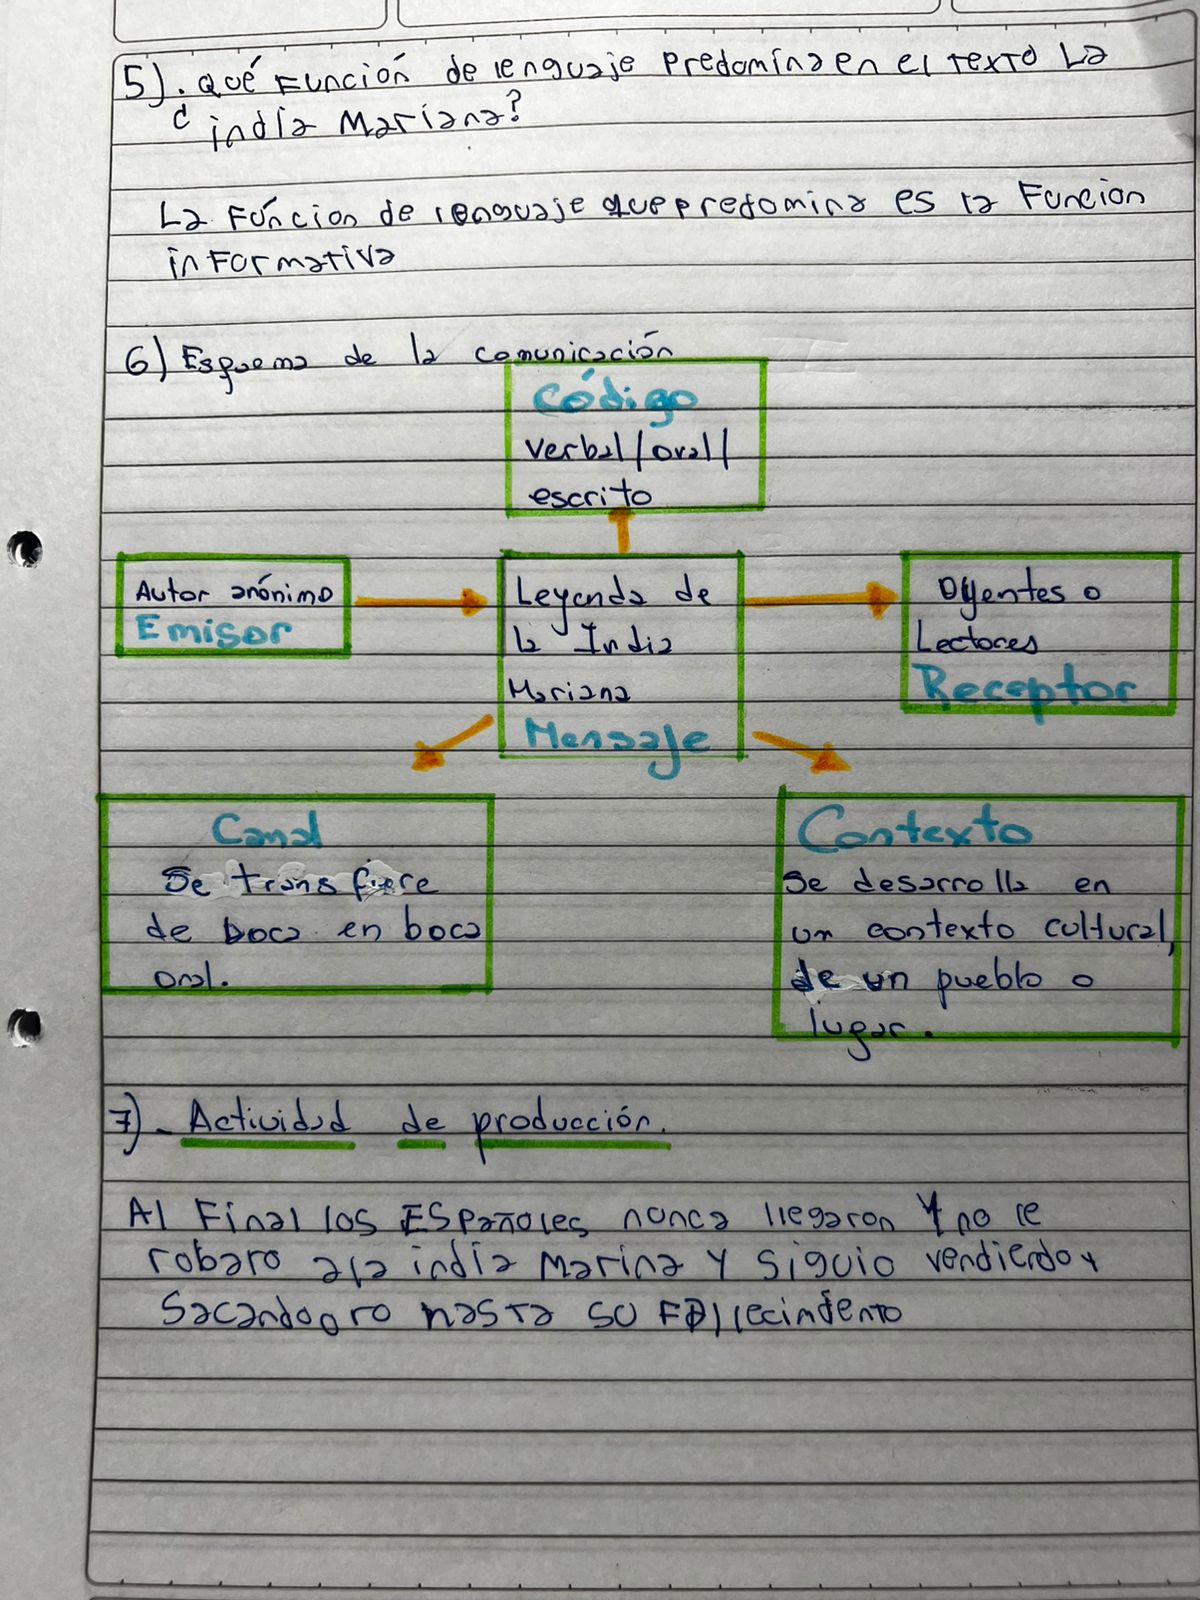 5). Qué Función de lenguaje Predomina en el texto La
¿ india Mariana?
La Función de lenguaje que predomina es la Función
informativa
6) Esquema de la comunicación
Código
verbal/oral/
escrito
Autor anónimo
Emisor
Leyenda de
la India
Mariana
Mensaje
Oyentes o
Lectores
Receptor
Canal
Se transfiere
de boca en boca
oral.
Contexto
Se desarrolla en
un contexto cultural,
de un pueblo o
lugar.
7)- Actividad de producción.
Al Final los Españoles nunca llegaron Y no le
robaro a la india Marina Y Siguio vendiendo y
Sacando oro hasta su Fallecimiento